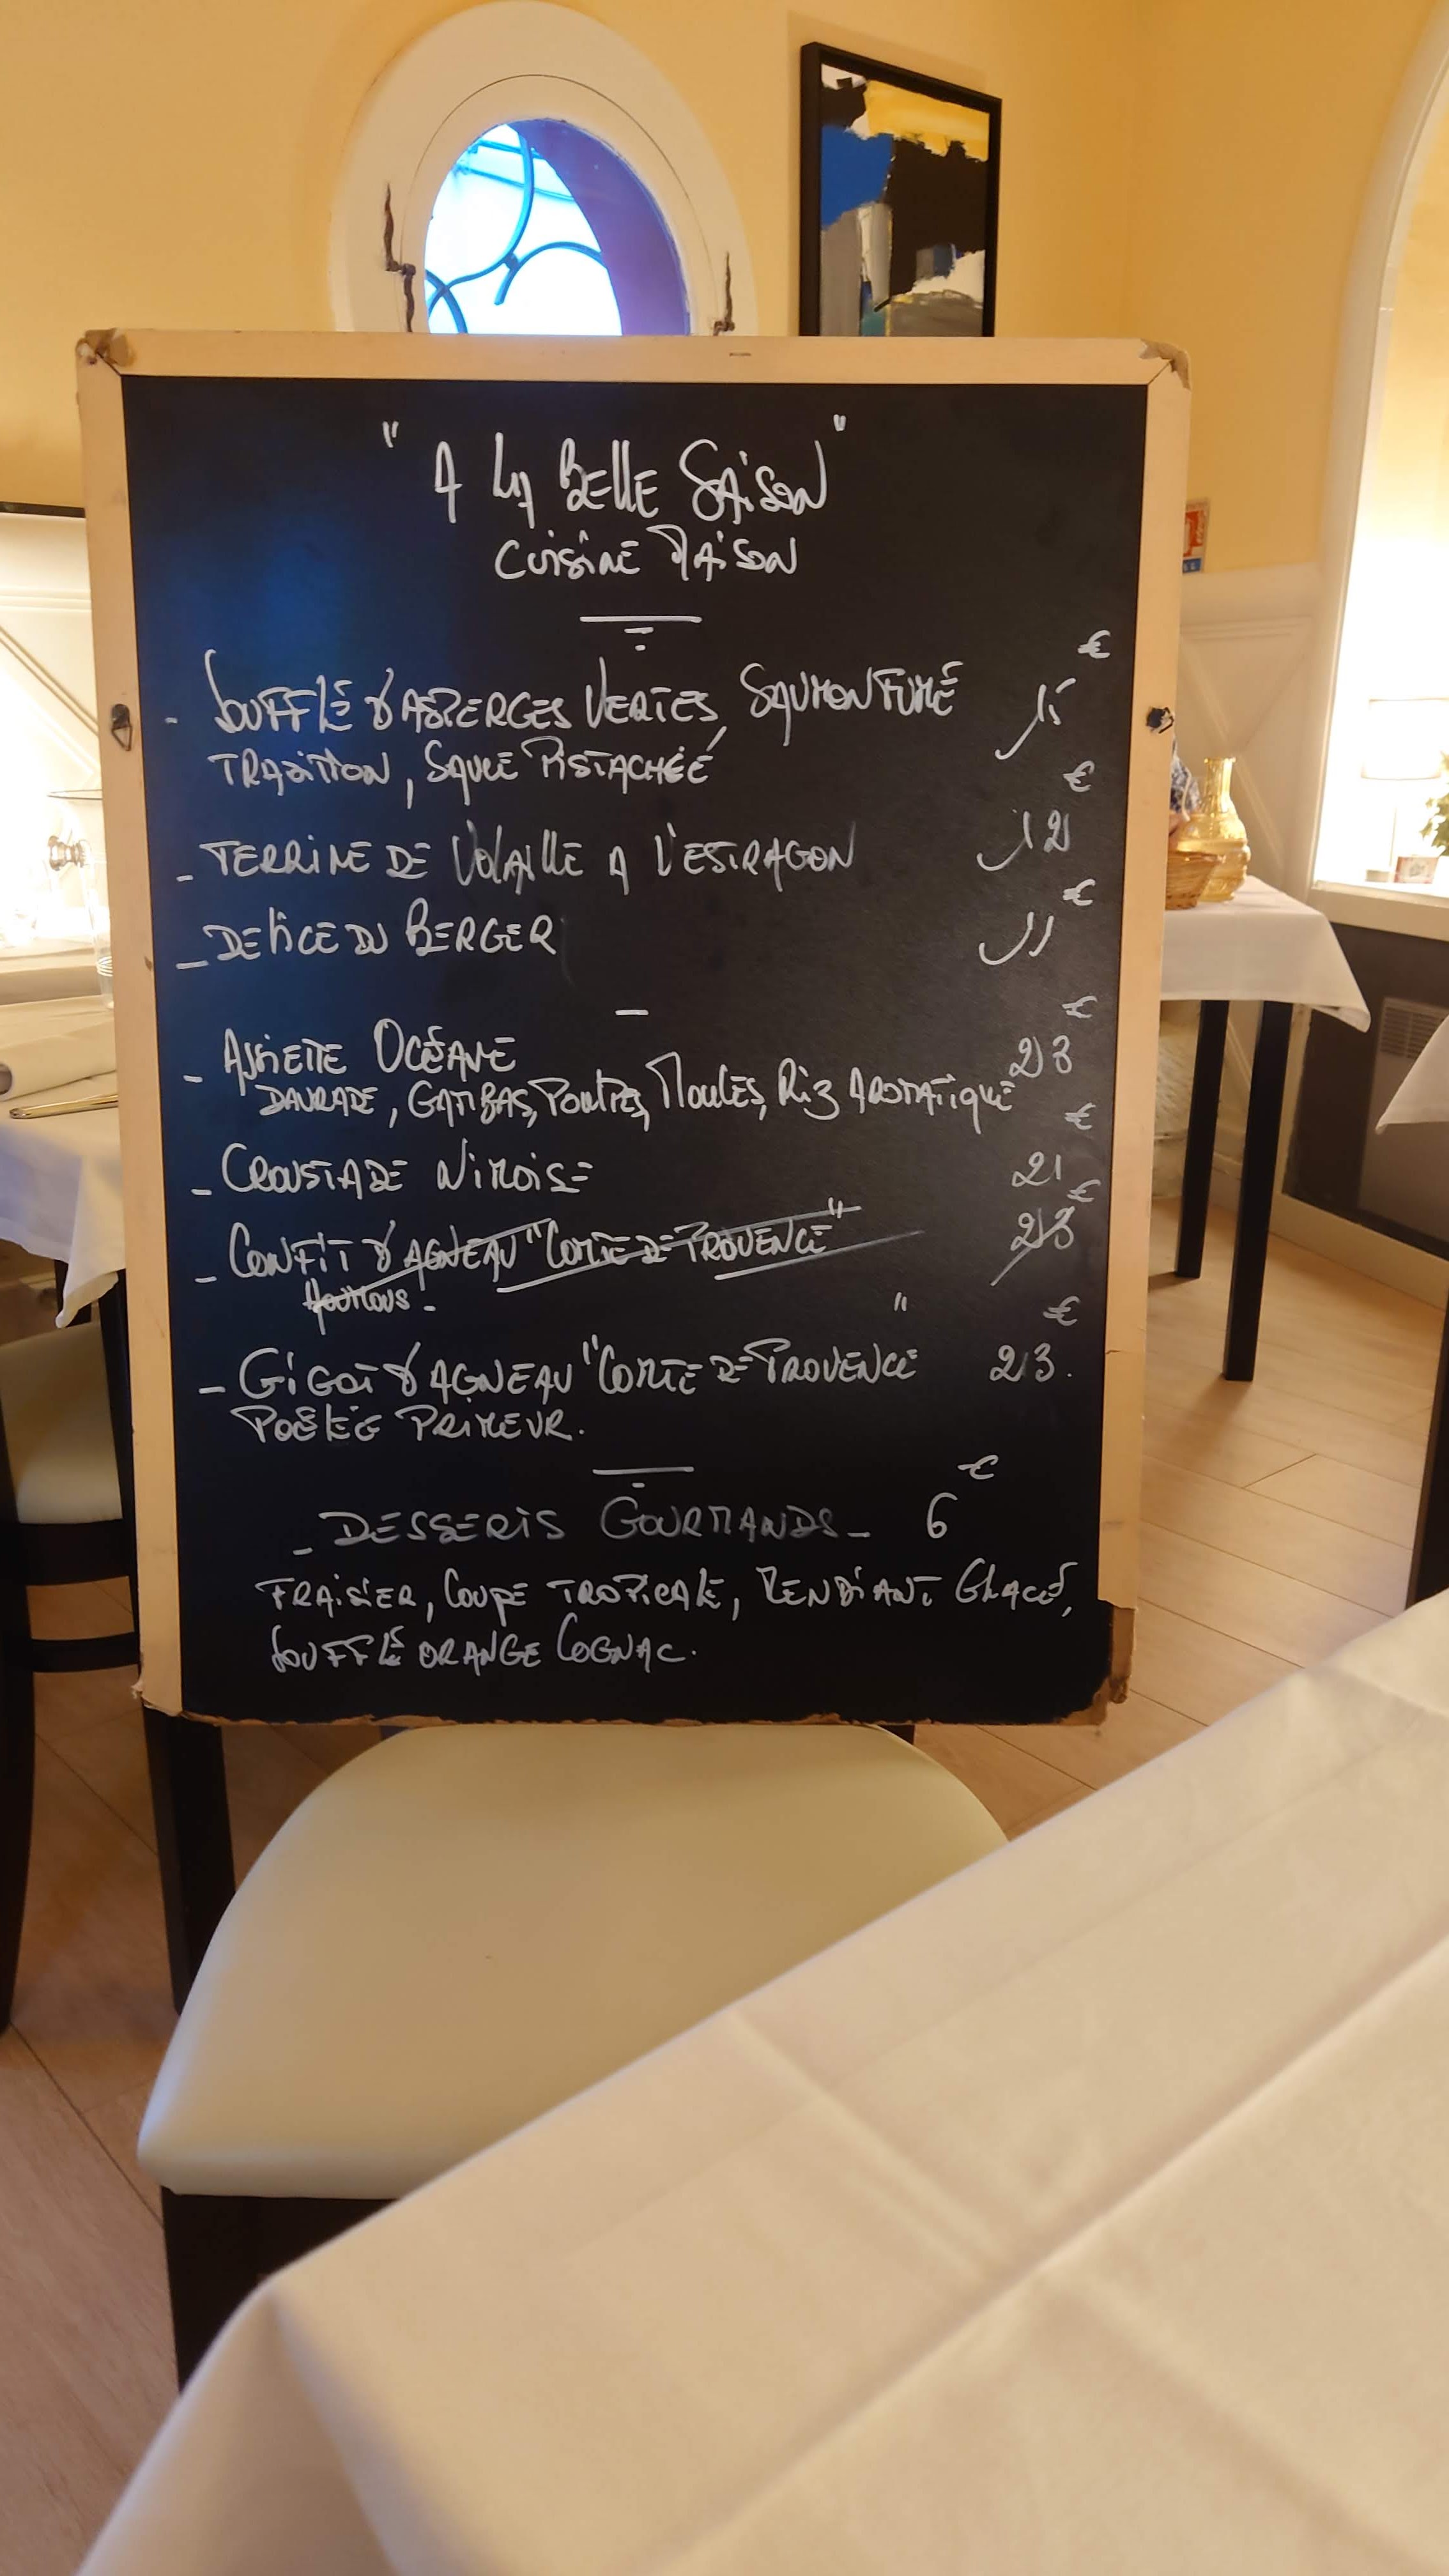 " A LA BELLE SAISON "
CUISINE MAISON
€
- SOUFFLÉ D'ASPERGES VERTES, SAUMON FUMÉ 15
TRADITION, SAUCE PISTACHÉE
€
- TERRINE DE VOLAILLE A L'ESTRAGON 12
€
- DELICE DU BERGER 11
€
- ASSIETTE OCÉANE 23
DAURADE, GAMBAS, MOULES, RIZ AROMATIQUE
€
- CROUSTADE NIMOISE 21
€
- CONFIT D'AGNEAU "COMTE DE PROVENCE" 23
€
- GIGOT D'AGNEAU "COMTE DE PROVENCE" 23.
POÊLÉE PRIMEUR.
€
- DESSERTS GOURMANDS - 6
FRAISIER, COUPE TROPICALE, MENDIANT GLACÉ,
SOUFFLÉ ORANGE COGNAC.